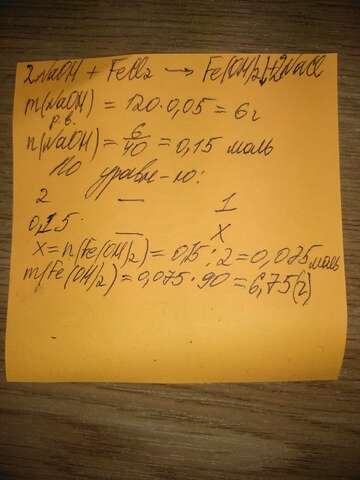 2NaOH + FeCl₂ → Fe(OH)₂↓+2NaCl
m(NaOH) = 120·0,05 = 6г
р.в.
n(NaOH) = 6/40 = 0,15 моль
По уравне-ю:
2 — 1
0,15 — x
x = n(Fe(OH)₂) = 0,15 : 2 = 0,075 моль
m(Fe(OH)₂) = 0,075·90 = 6,75(г)